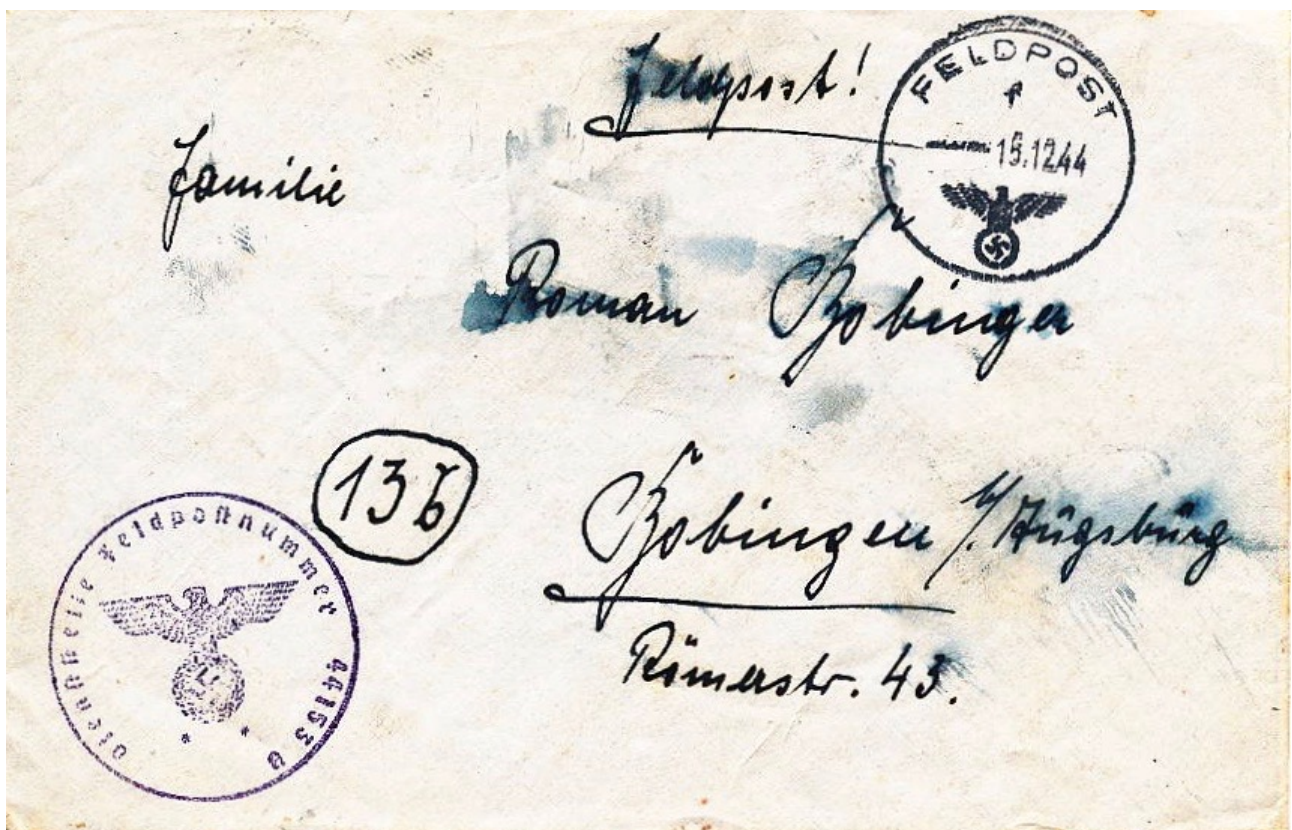 Feldpost!
FELDPOST
f
15.12.44
Familie
Roman Bobinger
13b
Bobingen b/. Augsburg
Römerstr. 43.
Dienststelle Feldpostnummer 44153 B